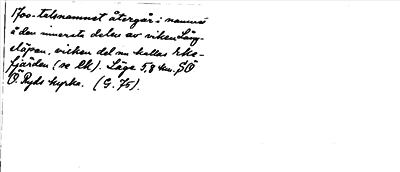 1700-talsnamnet återgår i namnet
å den innersta delen av viken Lång-
slöpen, vilken del nu kallas Eks-
fjärden (se Ek). Läge 5,8 km. SÖ
Ö. Ryds kyrka. (G. 75).